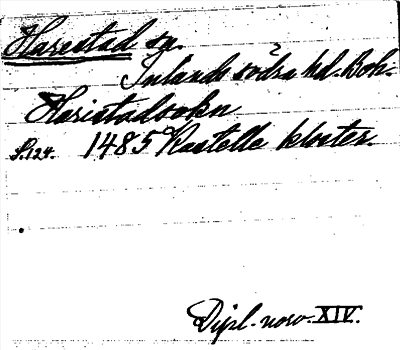 Harestad sn.
Inlands södra hd. Boh.
Haristadsokn
S.124. 1485 Kastelle kloster.
Dipl. norv. XIV.